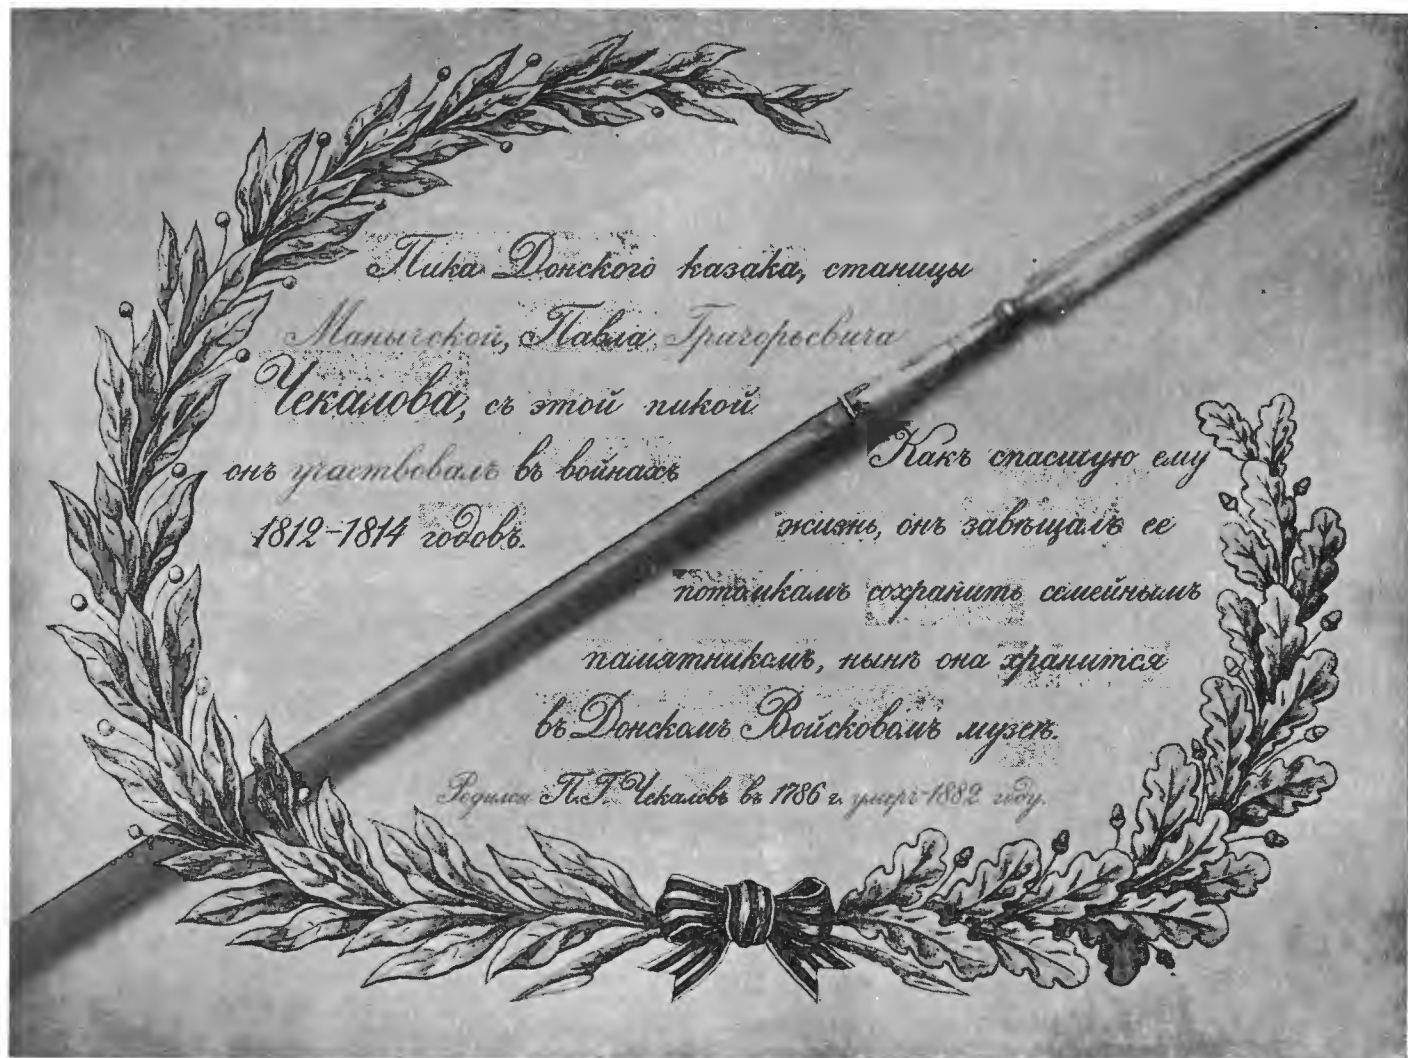 Пика Донского казака, станицы
Манычской, Павла Григорьевича
Чекалова, съ этой пикой
онъ участвовалъ въ войнахъ
1812-1814 годовъ.
Какъ спасшую ему
жизнь, онъ завѣщалъ ее
потомкамъ сохранить семейнымъ
памятникомъ, нынѣ она хранится
въ Донскомъ Войсковомъ музеѣ.
Родился П.Г. Чекаловъ въ 1786 г. умеръ 1882 году.